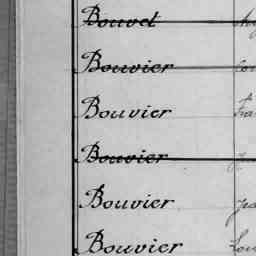 Bouvet
Bouvier
Bouvier
Bouvier
Bouvier
Bouvier